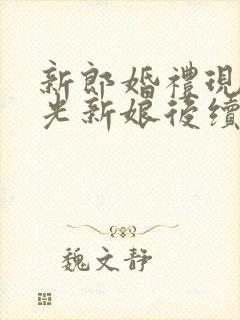 新郎婚禮現
光新娘後續
魏文靜